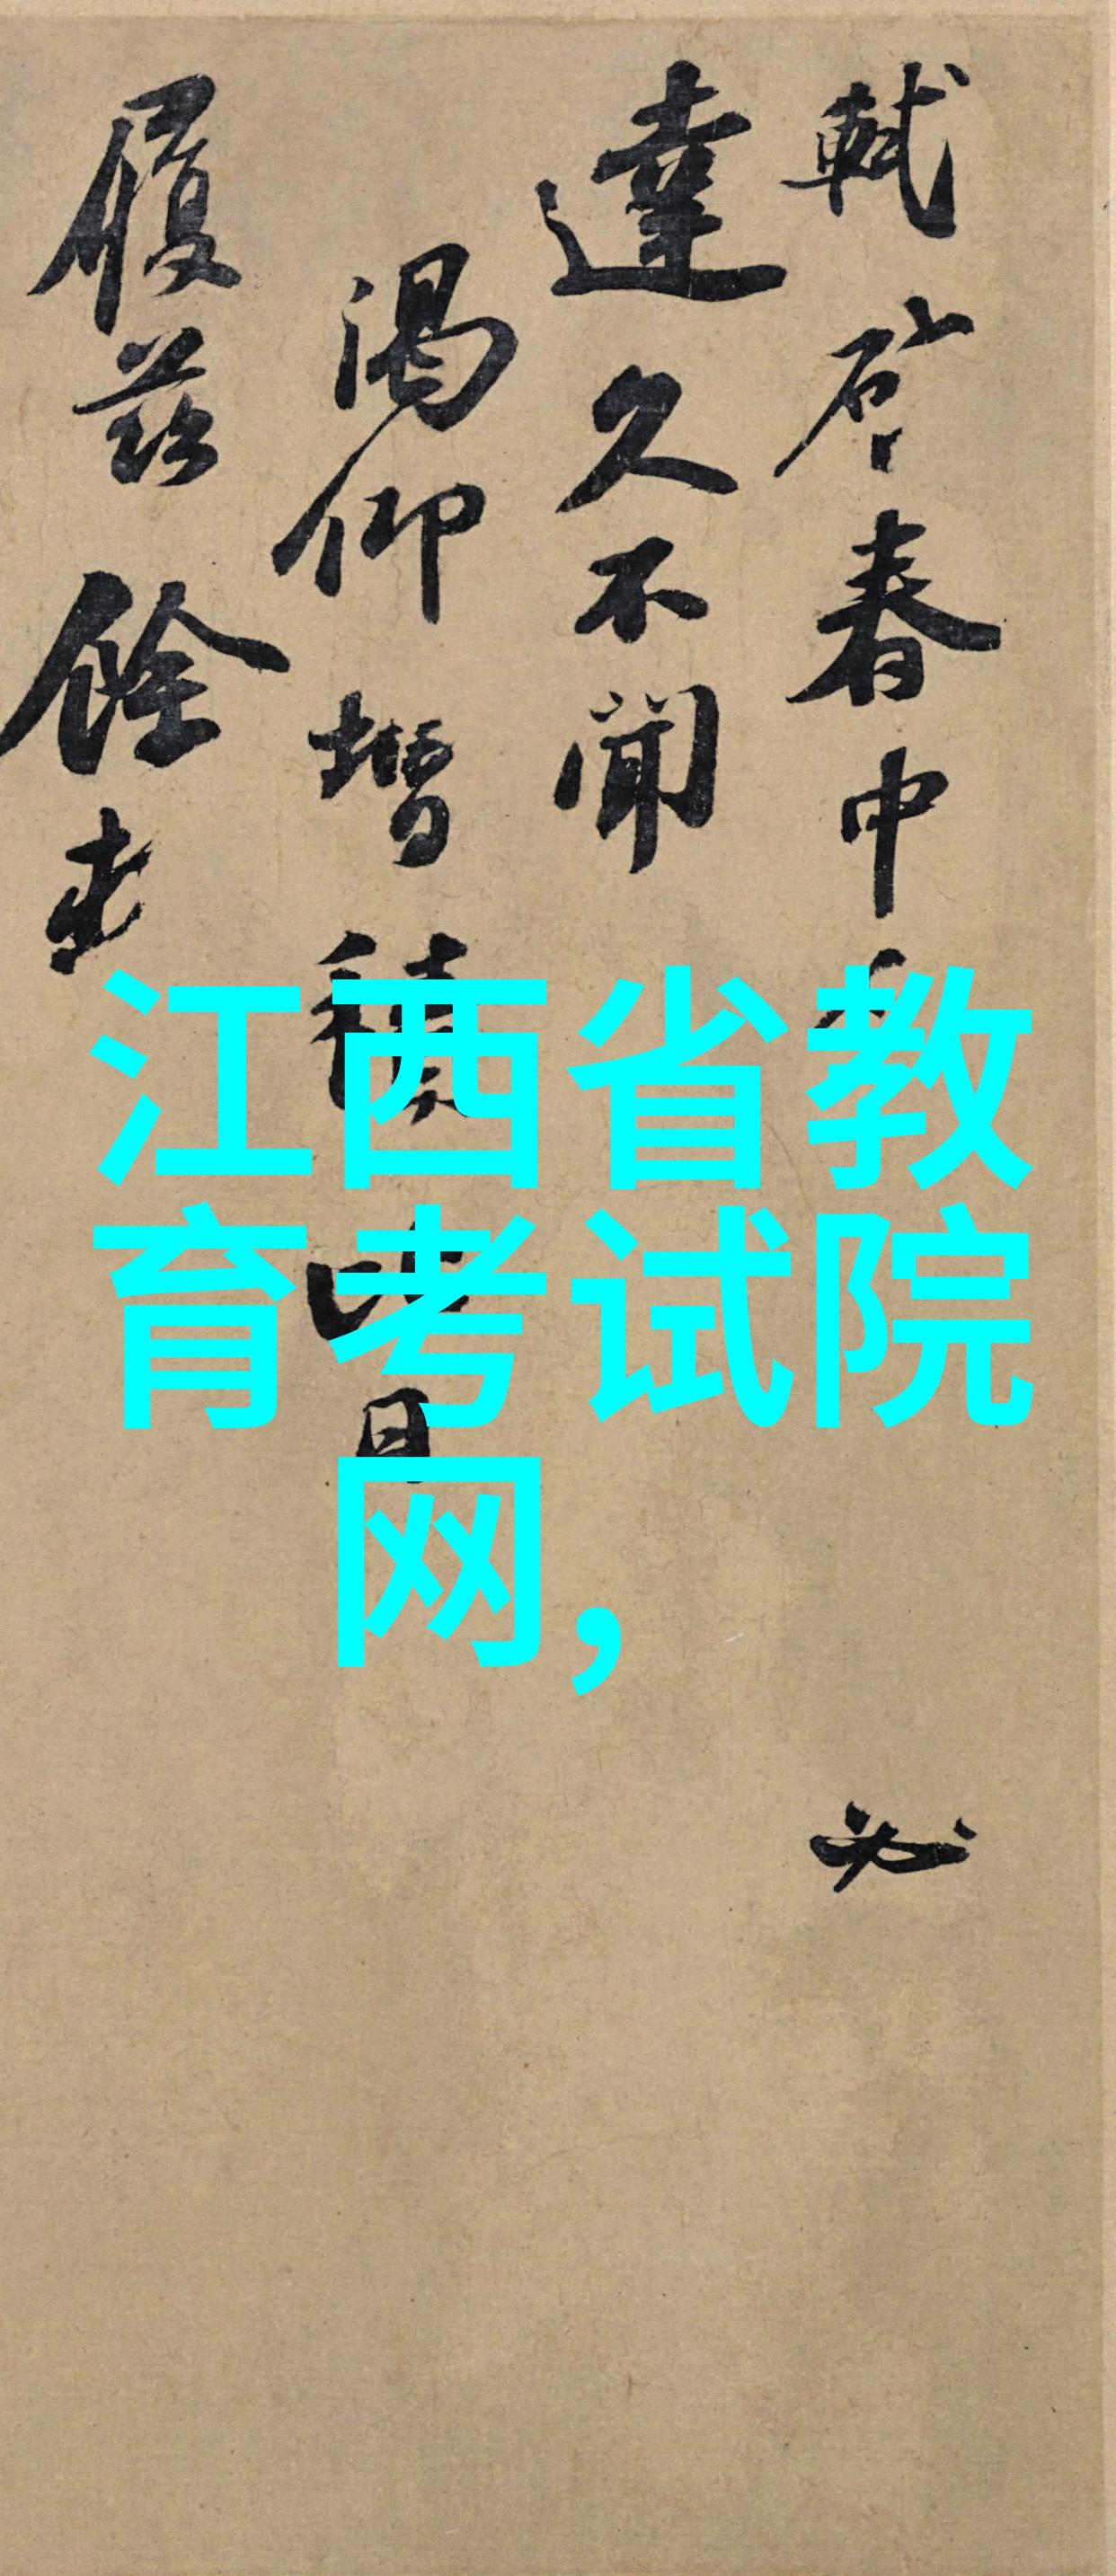 軾啓春中
必
達久不聞
渴仰增積比日
履茲餘
江西省教
育考试院
网,